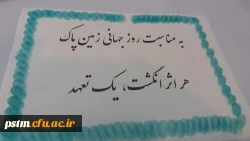 به مناسبت روز جهانی زمین پاک
هر اثر انگشت، یک تعهد
pstm.cfu.ac.ir